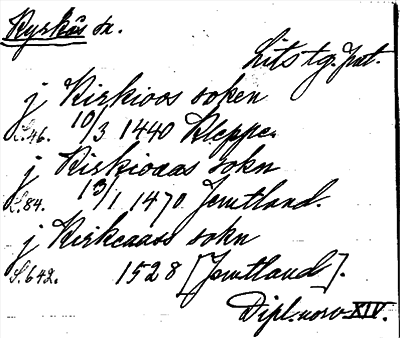 Kyrkås sn.
Lits tg. Jmt.
j Kirkioos soken
S. 46. 10/3 1440 Kleppe.
j Kirkioaas sokn
S. 84. 13/1 1470. Jemtland.
j Kirkeaass sokn
S. 642. 1528 [Jemtland].
Dipl. norv XIV.